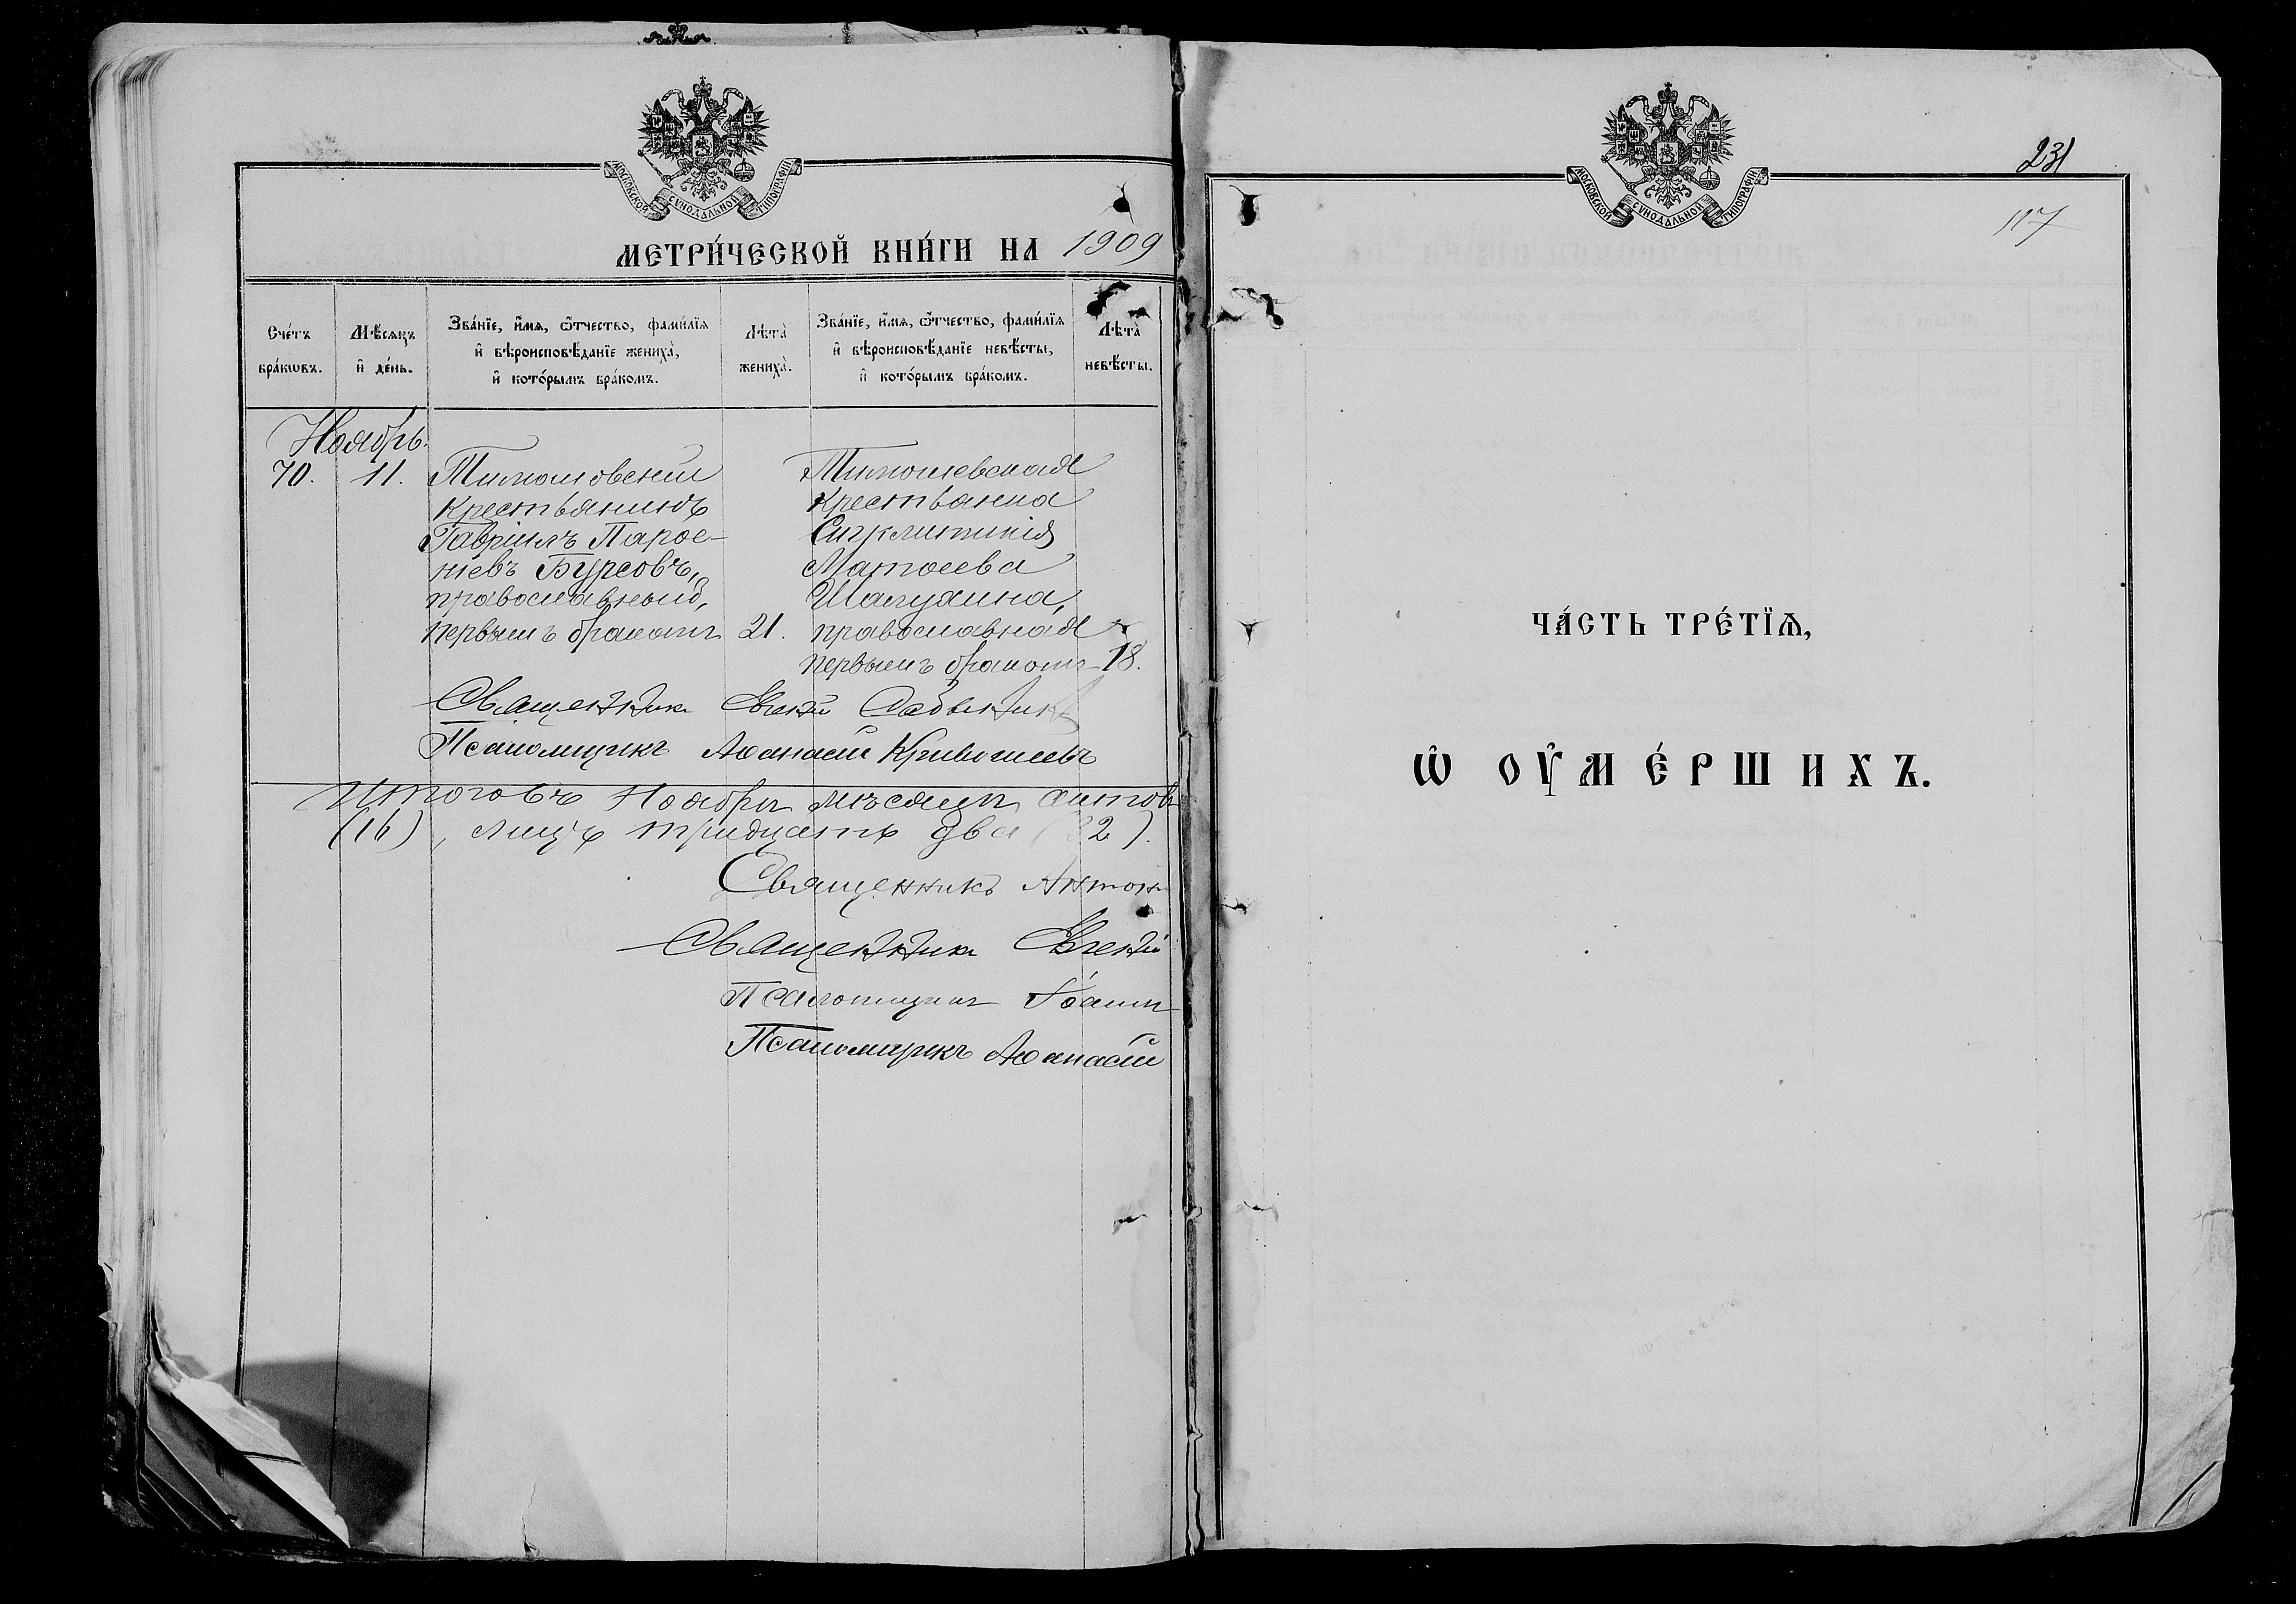 МОСКОВСКОЙ СѴНОДАЛЬНОЙ ТИПОГРАФІИ
МЕТРИ́ЧЕСКОЙ КНИ́ГИ НА 1909
Сче́тъ бра́кѡвъ.
Мѣ́сяцъ и҆ де́нь.
Зва́нїе, и҆́мѧ, ѻ҆́тчество, фами́лїѧ
и҆ вѣроисповѣ́данїе жениха̀,
и҆ кото́рымъ бра́комъ.
Лѣта̀ жениха̀.
Зва́нїе, и҆́мѧ, ѻ҆́тчество, фами́лїѧ
и҆ вѣроисповѣ́данїе невѣ́сты,
и҆ кото́рымъ бра́комъ.
Лѣта̀ невѣ́сты.
Ноябрь.
70. 11.
Тимошовскій
крестьянинъ
Гавріилъ Парѳе-
ніевъ Бурсовъ,
православный,
первымъ бракомъ 21.
Тимошевская
крестьянка
Синклитикія
Матѳеева
Шалухина,
православная
первымъ бракомъ 18.
Священникъ Евгеній
Псаломщикъ Аѳанасій Кривошеевъ
Итого въ Ноябрѣ мѣсяцѣ актовъ
(16), лицъ тридцать два (32).
Священникъ Антоній
Священникъ Евгеній
Псаломщикъ Іоаннъ
Псаломщикъ Аѳанасій
МОСКОВСКОЙ СѴНОДАЛЬНОЙ ТИПОГРАФІИ
231
117
ЧА́СТЬ ТРЕ́ТЇѦ,
Ѡ҆ ОУ҆МЕ́РШИХЪ.